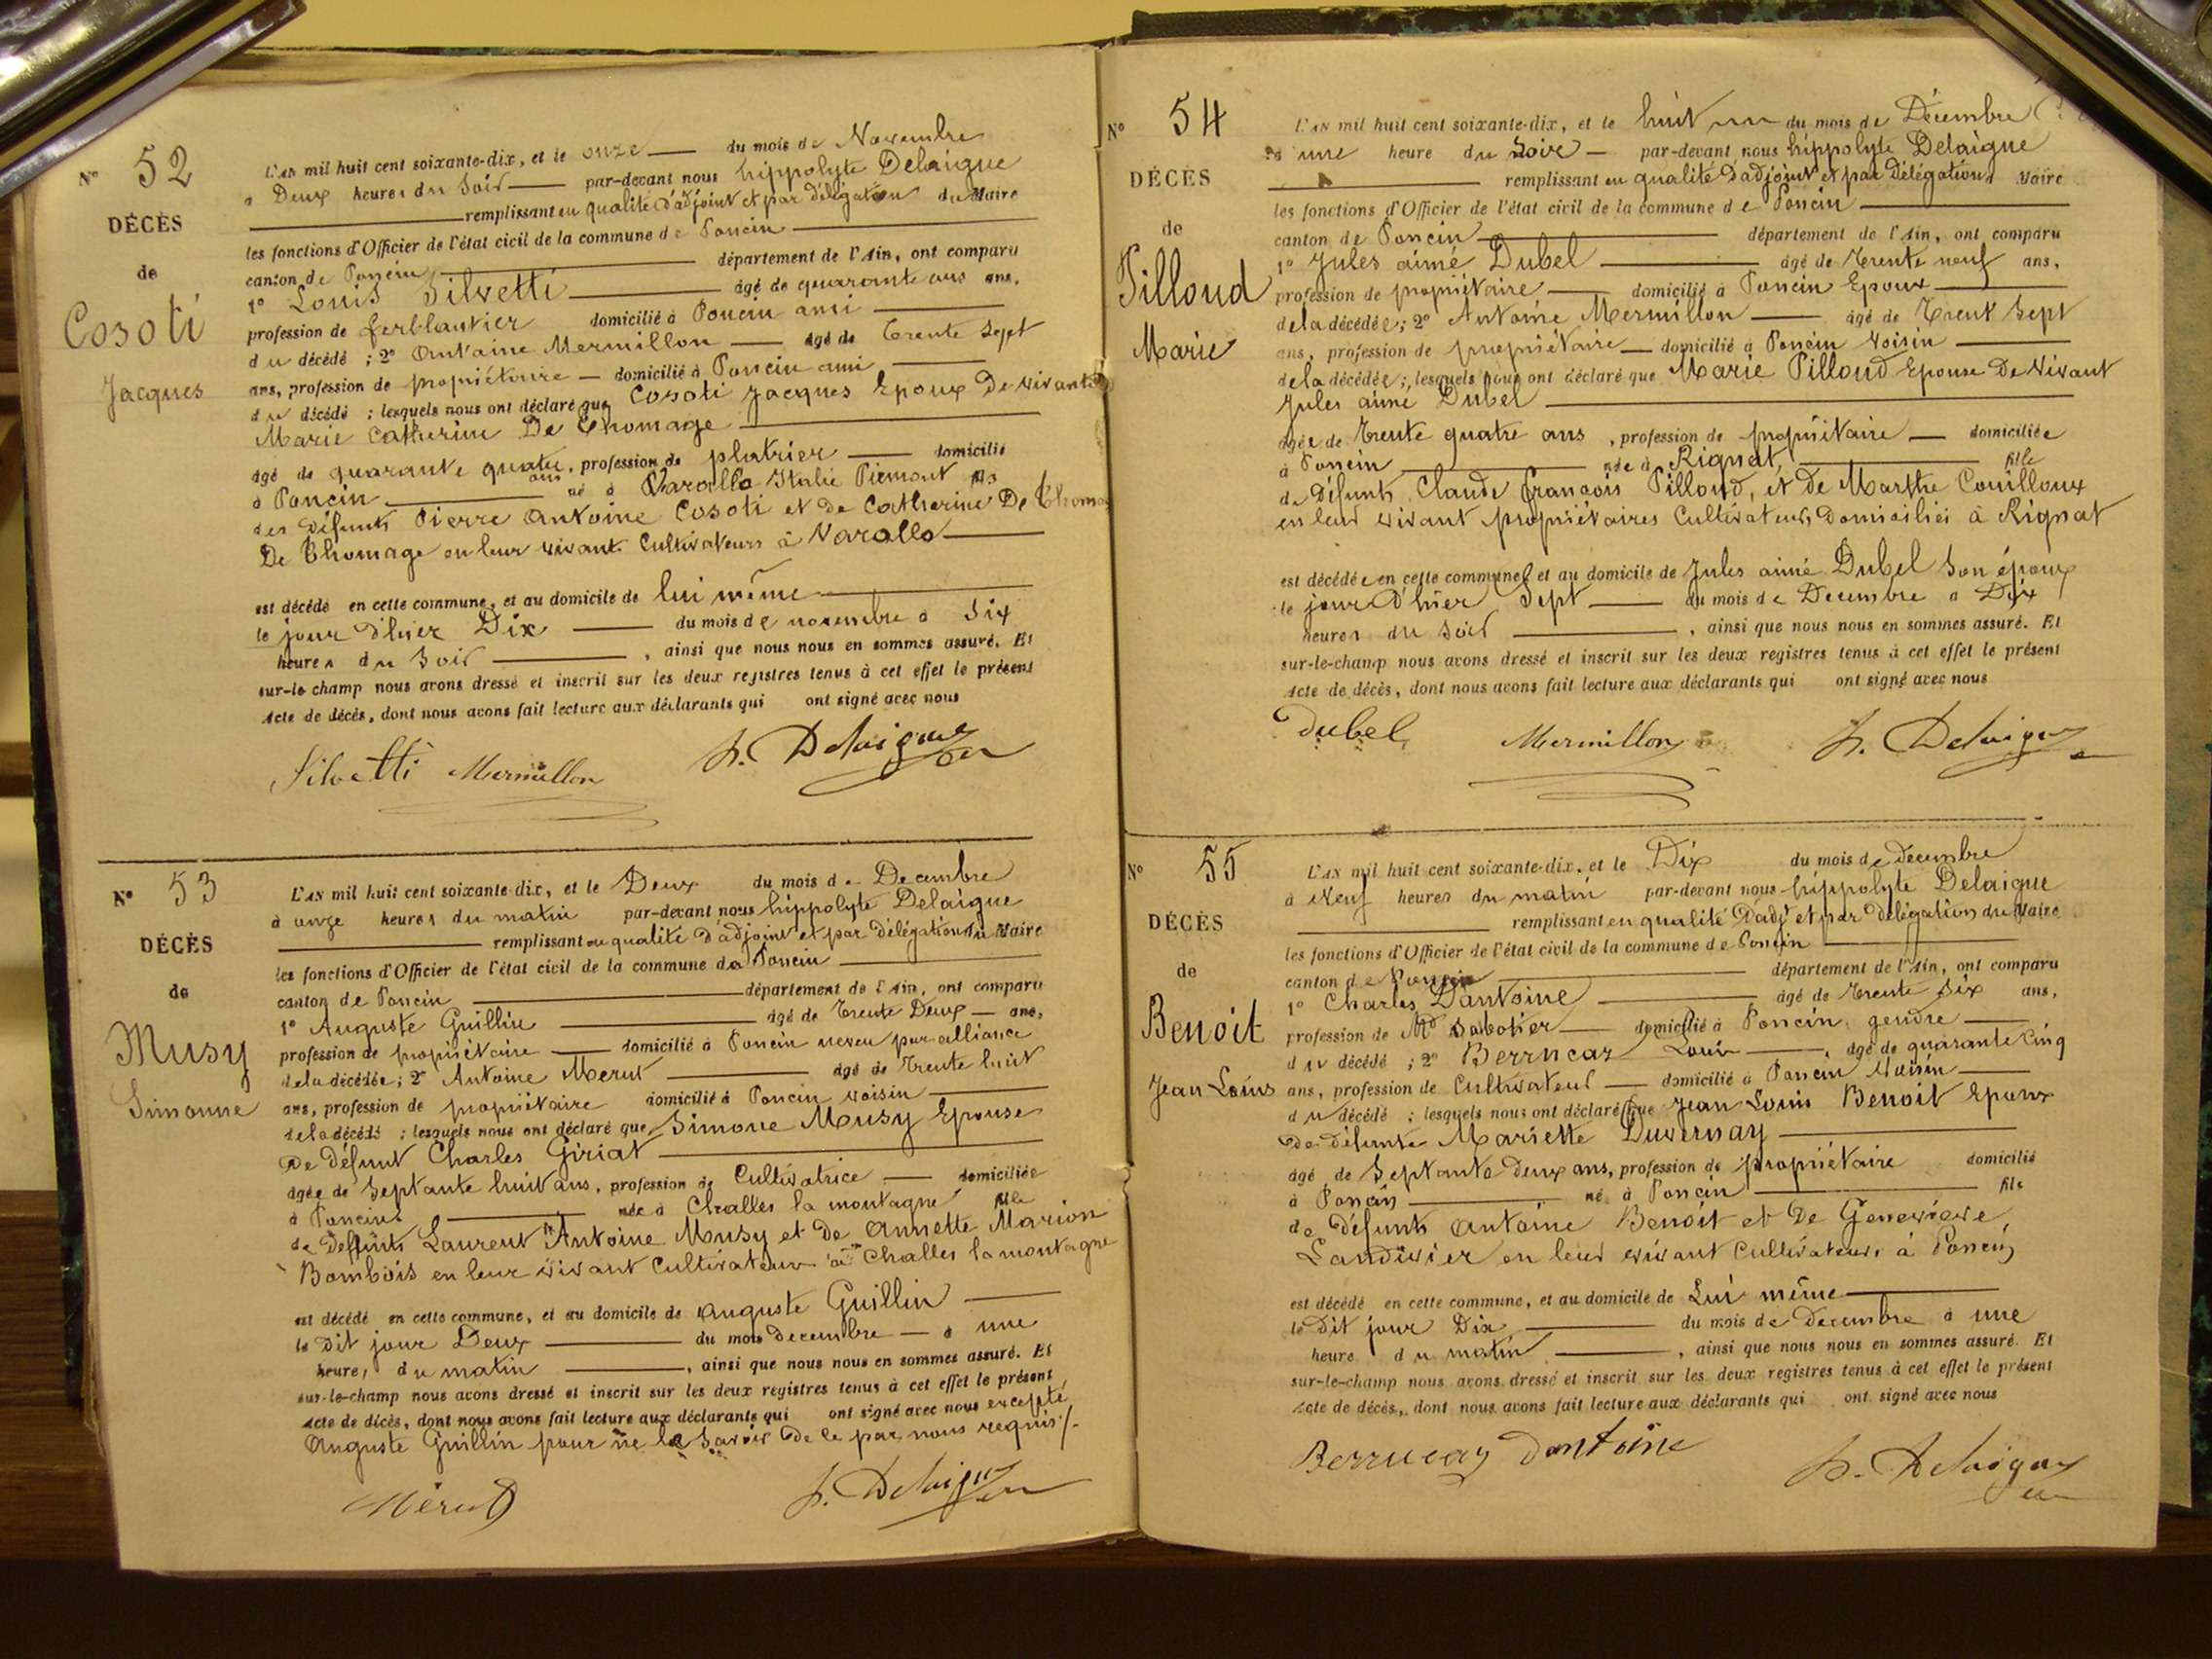 N° 52
DÉCÈS
de
Cosoti
Jacques
L'AN mil huit cent soixante-dix, et le onze du mois de Novembre
à Deux heures du Soir par-devant nous hippolyte Delaigue
remplissant en qualité d'adjoint et par délégation du Maire
les fonctions d'Officier de l'état civil de la commune de Poncin
canton de Poncin département de l'Ain, ont comparu
1° Louis Silvetti âgé de quarante ans,
profession de ferblantier domicilié à Poncin ami
du décédé ; 2° Antoine Mermillon âgé de Trente Sept
ans, profession de propriétaire domicilié à Poncin ami
du décédé ; lesquels nous ont déclaré que Cosoti Jacques Epoux De vivante
Marie Catherine De Thomage
âgé de quarante quatre ans, profession de platrier domicilié
à Poncin né à Varallo Italie Piemont fils
des défunts Pierre Antoine Cosoti et de Catherine
De Thomage en leur vivant Cultivateurs à Varallo
est décédé en cette commune, et au domicile de lui même
le jour d'hier Dix du mois de novembre à Six
heures du Soir , ainsi que nous nous en sommes assuré. Et
sur-le-champ nous avons dressé et inscrit sur les deux registres tenus à cet effet le présent
Acte de décès, dont nous avons fait lecture aux déclarants qui ont signé avec nous
Silvetti Mermillon h. Delaigue
N° 53
DÉCÈS
de
Musy
Simonne
L'AN mil huit cent soixante-dix, et le Deux du mois de Decembre
à onze heures du matin par-devant nous hippolyte Delaigue
remplissant en qualité d'adjoint et par délégation du Maire
les fonctions d'Officier de l'état civil de la commune de Poncin
canton de Poncin département de l'Ain, ont comparu
1° Auguste Guillin âgé de Trente Deux ans,
profession de propriétaire domicilié à Poncin neveu par alliance
de la décédée ; 2° Antoine Merut âgé de Trente huit
ans, profession de propriétaire domicilié à Poncin voisin
de la décédé ; lesquels nous ont déclaré que Simone Musy Epouse
De défunt Charles Giriat
âgée de Septante huit ans, profession de Cultivatrice domiciliée
à Poncin née à Challes la montagne fille
de Deffunts Laurent Antoine Musy et De Annette Marion
Bombois en leur vivant Cultivateurs à Challes la montagne
est décédé en cette commune, et au domicile de Auguste Guillin
le Dit jour Deux du mois Decembre à une
heure, du matin , ainsi que nous nous en sommes assuré. Et
sur-le-champ nous avons dressé et inscrit sur les deux registres tenus à cet effet le présent
Acte de décès, dont nous avons fait lecture aux déclarants qui ont signé avec nous excepté
Auguste Guillin pour ne le Savoir De ce par nous requis /.
Mérut h. Delaigue
N° 54
DÉCÈS
de
Pilloud
Marie
L'AN mil huit cent soixante-dix, et le huit du mois de Décembre
à une heure du Soire par-devant nous hippolyte Delaigue
remplissant en qualité D'adjoint et par Délégation Maire
les fonctions d'Officier de l'état civil de la commune de Poncin
canton de Poncin département de l'Ain, ont comparu
1° Jules aimé Dubel âgé de Trente neuf ans,
profession de propriétaire domicilié à Poncin Epoux
de la décédée ; 2° Antoine Mermillon âgé de Trent Sept
ans, profession de propriétaire domicilié à Poncin Voisin
de la décédée ; lesquels nous ont déclaré que Marie Pilloud Epouse De Vivant
Jules aimé Dubel
âgée de Trente quatre ans, profession de propriétaire domiciliée
à Poncin née à Rignat fille
de Défunts Claude françois Pilloud, et De Marthe Couilloux
en leur vivant propriétaires Cultivateurs Domiciliés à Rignat
est décédée en cette commune et au domicile de Jules aimé Dubel Son époux
le jour D'hier Sept du mois de Decembre à Dix
heures du Soir , ainsi que nous nous en sommes assuré. Et
sur-le-champ nous avons dressé et inscrit sur les deux registres tenus à cet effet le présent
Acte de décès, dont nous avons fait lecture aux déclarants qui ont signé avec nous
Dubel Mermillon h. Delaigue
N° 55
DÉCÈS
de
Benoit
Jean Louis
L'AN mil huit cent soixante-dix, et le Dix du mois de decembre
à Neuf heures du matin par-devant nous hippolyte Delaigue
remplissant en qualité D'adjt et par délégation du Maire
les fonctions d'Officier de l'état civil de la commune de Poncin
canton de Poncin département de l'Ain, ont comparu
1° Charles Dantoine âgé de Trente Six ans,
profession de Md Sabotier domicilié à Poncin gendre
du décédé ; 2° Berrucaz Louis , âgé de quarante Cinq
ans, profession de Cultivateur domicilié à Poncin Voisin
du décédé ; lesquels nous ont déclaré que Jean Louis Benoit Epoux
De défunte Mariette Duvernay
âgé de Septante deux ans, profession de propriétaire domicilié
à Poncin né à Poncin fils
de Défunts Antoine Benoit et De Genevieve
Landivier en leur vivant Cultivateurs à Poncin
est décédé en cette commune, et au domicile de Lui même
le Dit jour Dix du mois de Decembre à une
heure du matin , ainsi que nous nous en sommes assuré. Et
sur-le-champ nous avons dressé et inscrit sur les deux registres tenus à cet effet le présent
Acte de décès, dont nous avons fait lecture aux déclarants qui ont signé avec nous
Berrucaz Dantoine h. Delaigue